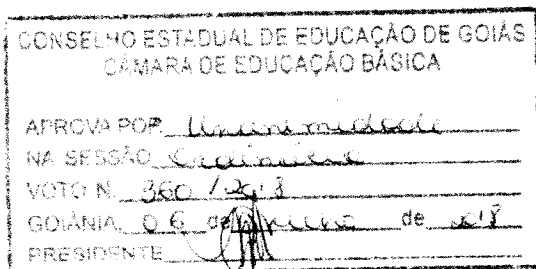 CONSELHO ESTADUAL DE EDUCAÇÃO DE GOIÁS
CÂMARA DE EDUCAÇÃO BÁSICA
APROVA POR Unanimidade
NA SESSÃO Ordinária
VOTO N. 360 /2018
GOIÂNIA, 06 de de 2018
PRESIDENTE